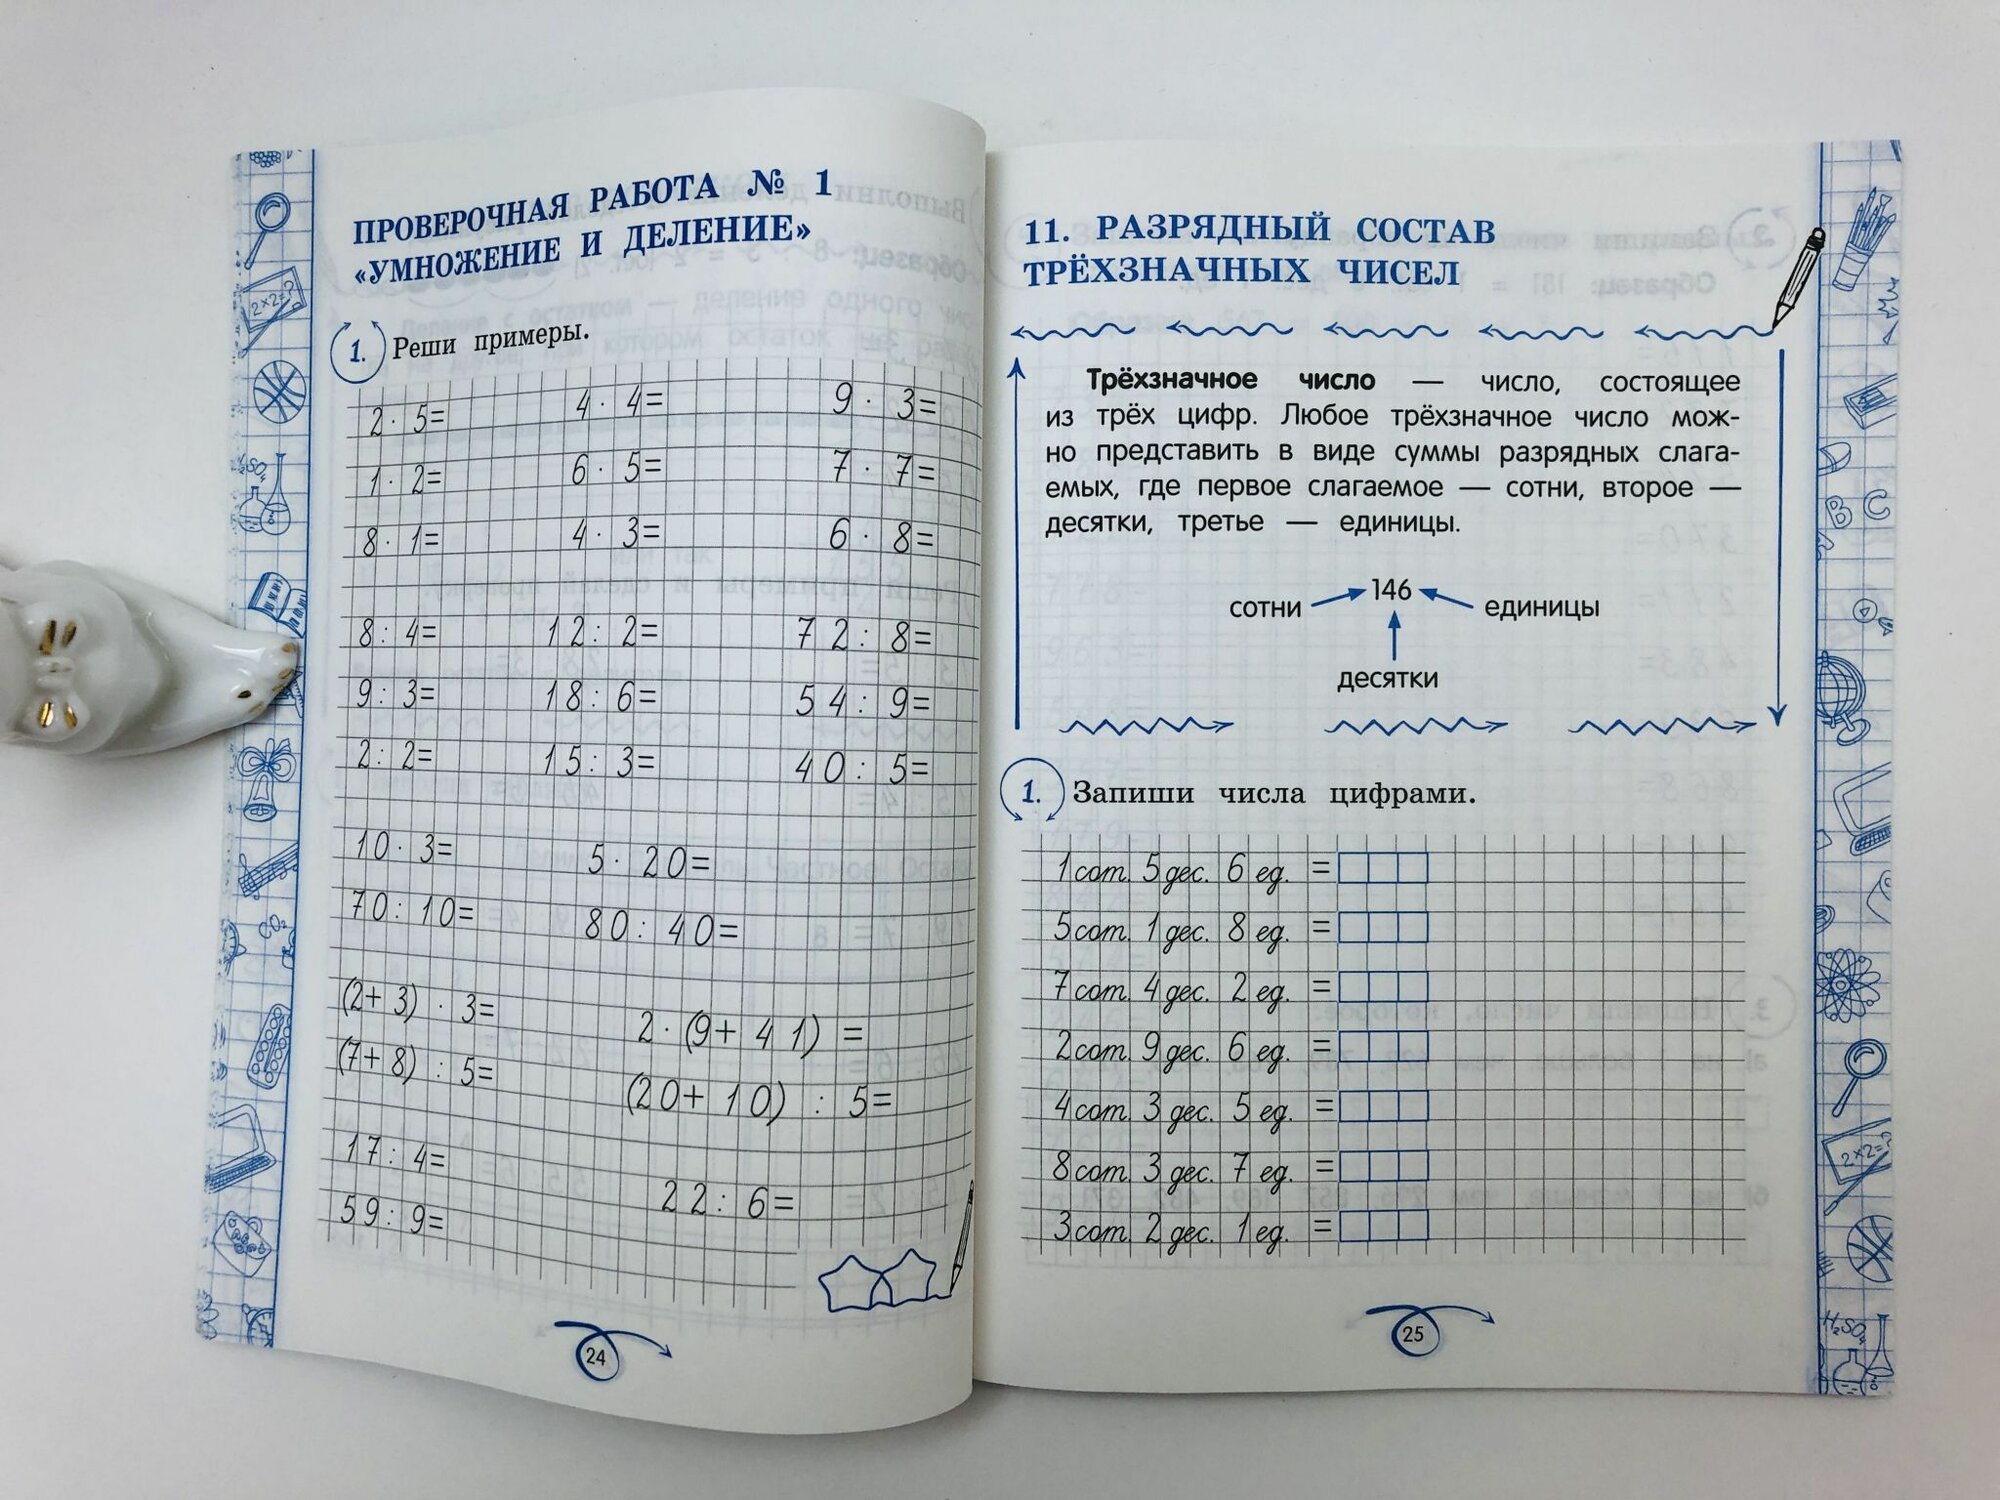 ПРОВЕРОЧНАЯ РАБОТА № 1
«УМНОЖЕНИЕ И ДЕЛЕНИЕ»
1. Реши примеры.
2 · 5= 4 · 4= 9 · 3=
1 · 2= 6 · 5= 7 · 7=
8 · 1= 4 · 3= 6 · 8=
8 : 4= 12 : 2= 72 : 8=
9 : 3= 18 : 6= 54 : 9=
2 : 2= 15 : 3= 40 : 5=
10 · 3= 5 · 20=
70 : 10= 80 : 40=
(2+3) · 3= 2 · (9+41) =
(7+8) : 5= (20+10) : 5=
17 : 4= 22 : 6=
59 : 9=
24
11. РАЗРЯДНЫЙ СОСТАВ
ТРЁХЗНАЧНЫХ ЧИСЕЛ
Трёхзначное число — число, состоящее
из трёх цифр. Любое трёхзначное число мож-
но представить в виде суммы разрядных слага-
емых, где первое слагаемое — сотни, второе —
десятки, третье — единицы.
146
сотни единицы
десятки
1. Запиши числа цифрами.
1 сот. 5 дес. 6 ед. =
5 сот. 1 дес. 8 ед. =
7 сот. 4 дес. 2 ед. =
2 сот. 9 дес. 6 ед. =
4 сот. 3 дес. 5 ед. =
8 сот. 3 дес. 7 ед. =
3 сот. 2 дес. 1 ед. =
25
2×2=?
H₂SO₄
CO₂
B C
2×2=?
H₂SO₄